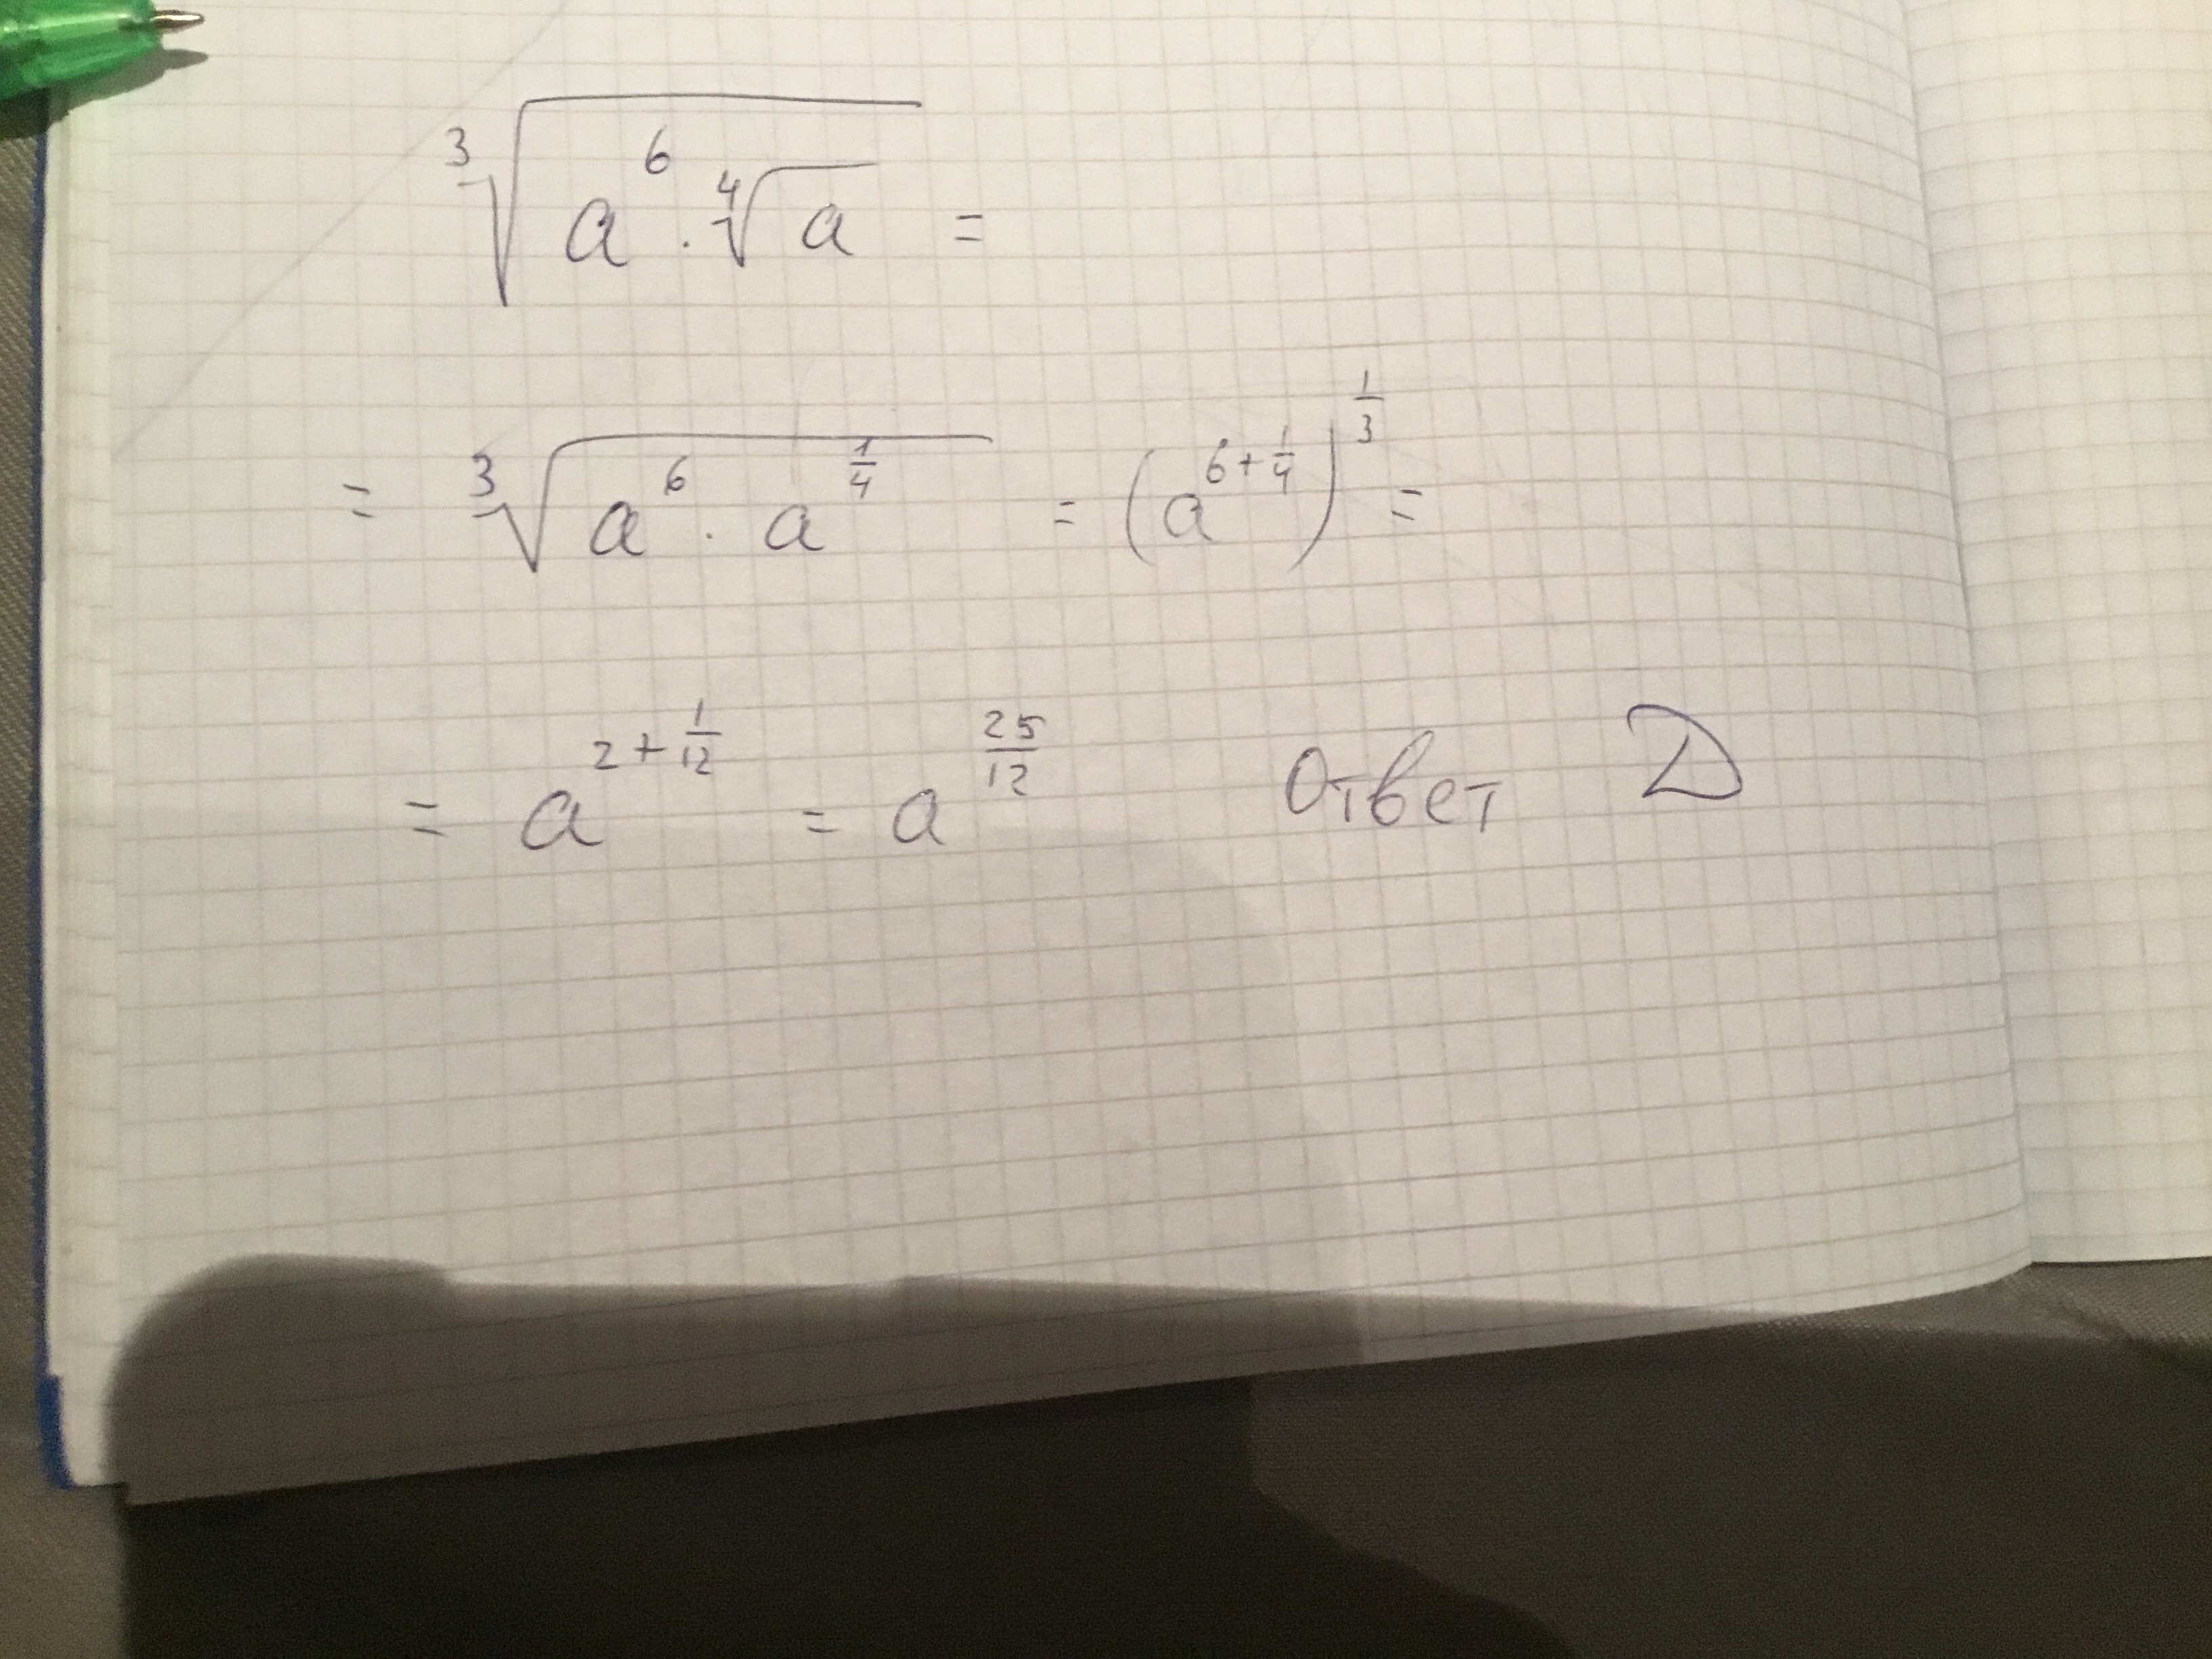 ∛(a⁶ · ∜a) =
= ∛(a⁶ · a^(1/4)) = (a^(6+1/4))^(1/3) =
= a^(2+1/12) = a^(25/12) Ответ D